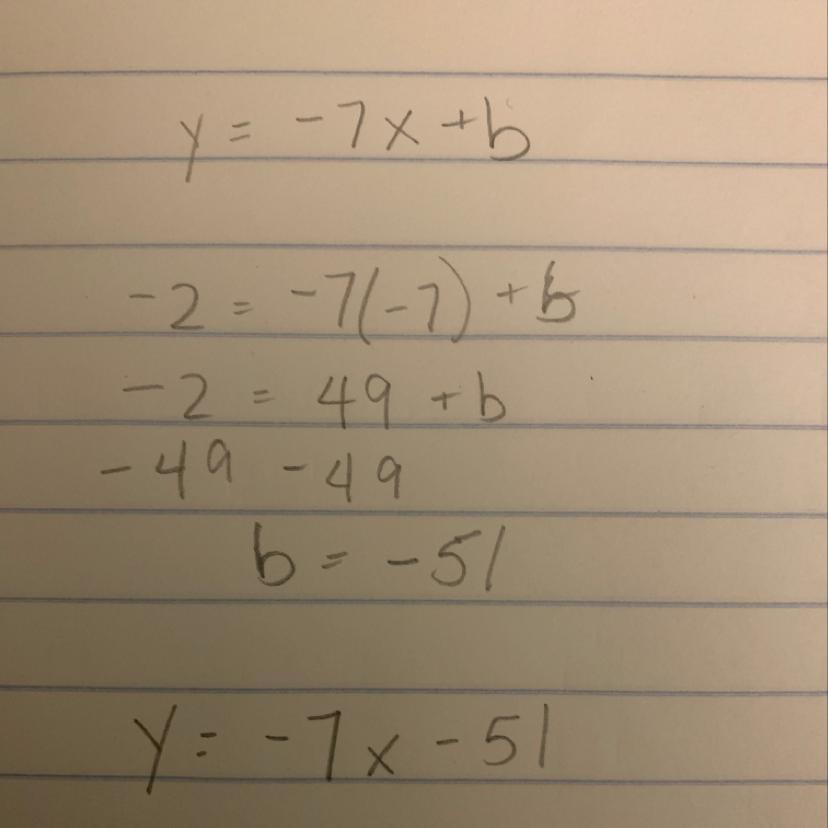 y = -7x + b
-2 = -7(-7) + b
-2 = 49 + b
-49 -49
b = -51
y = -7x - 51